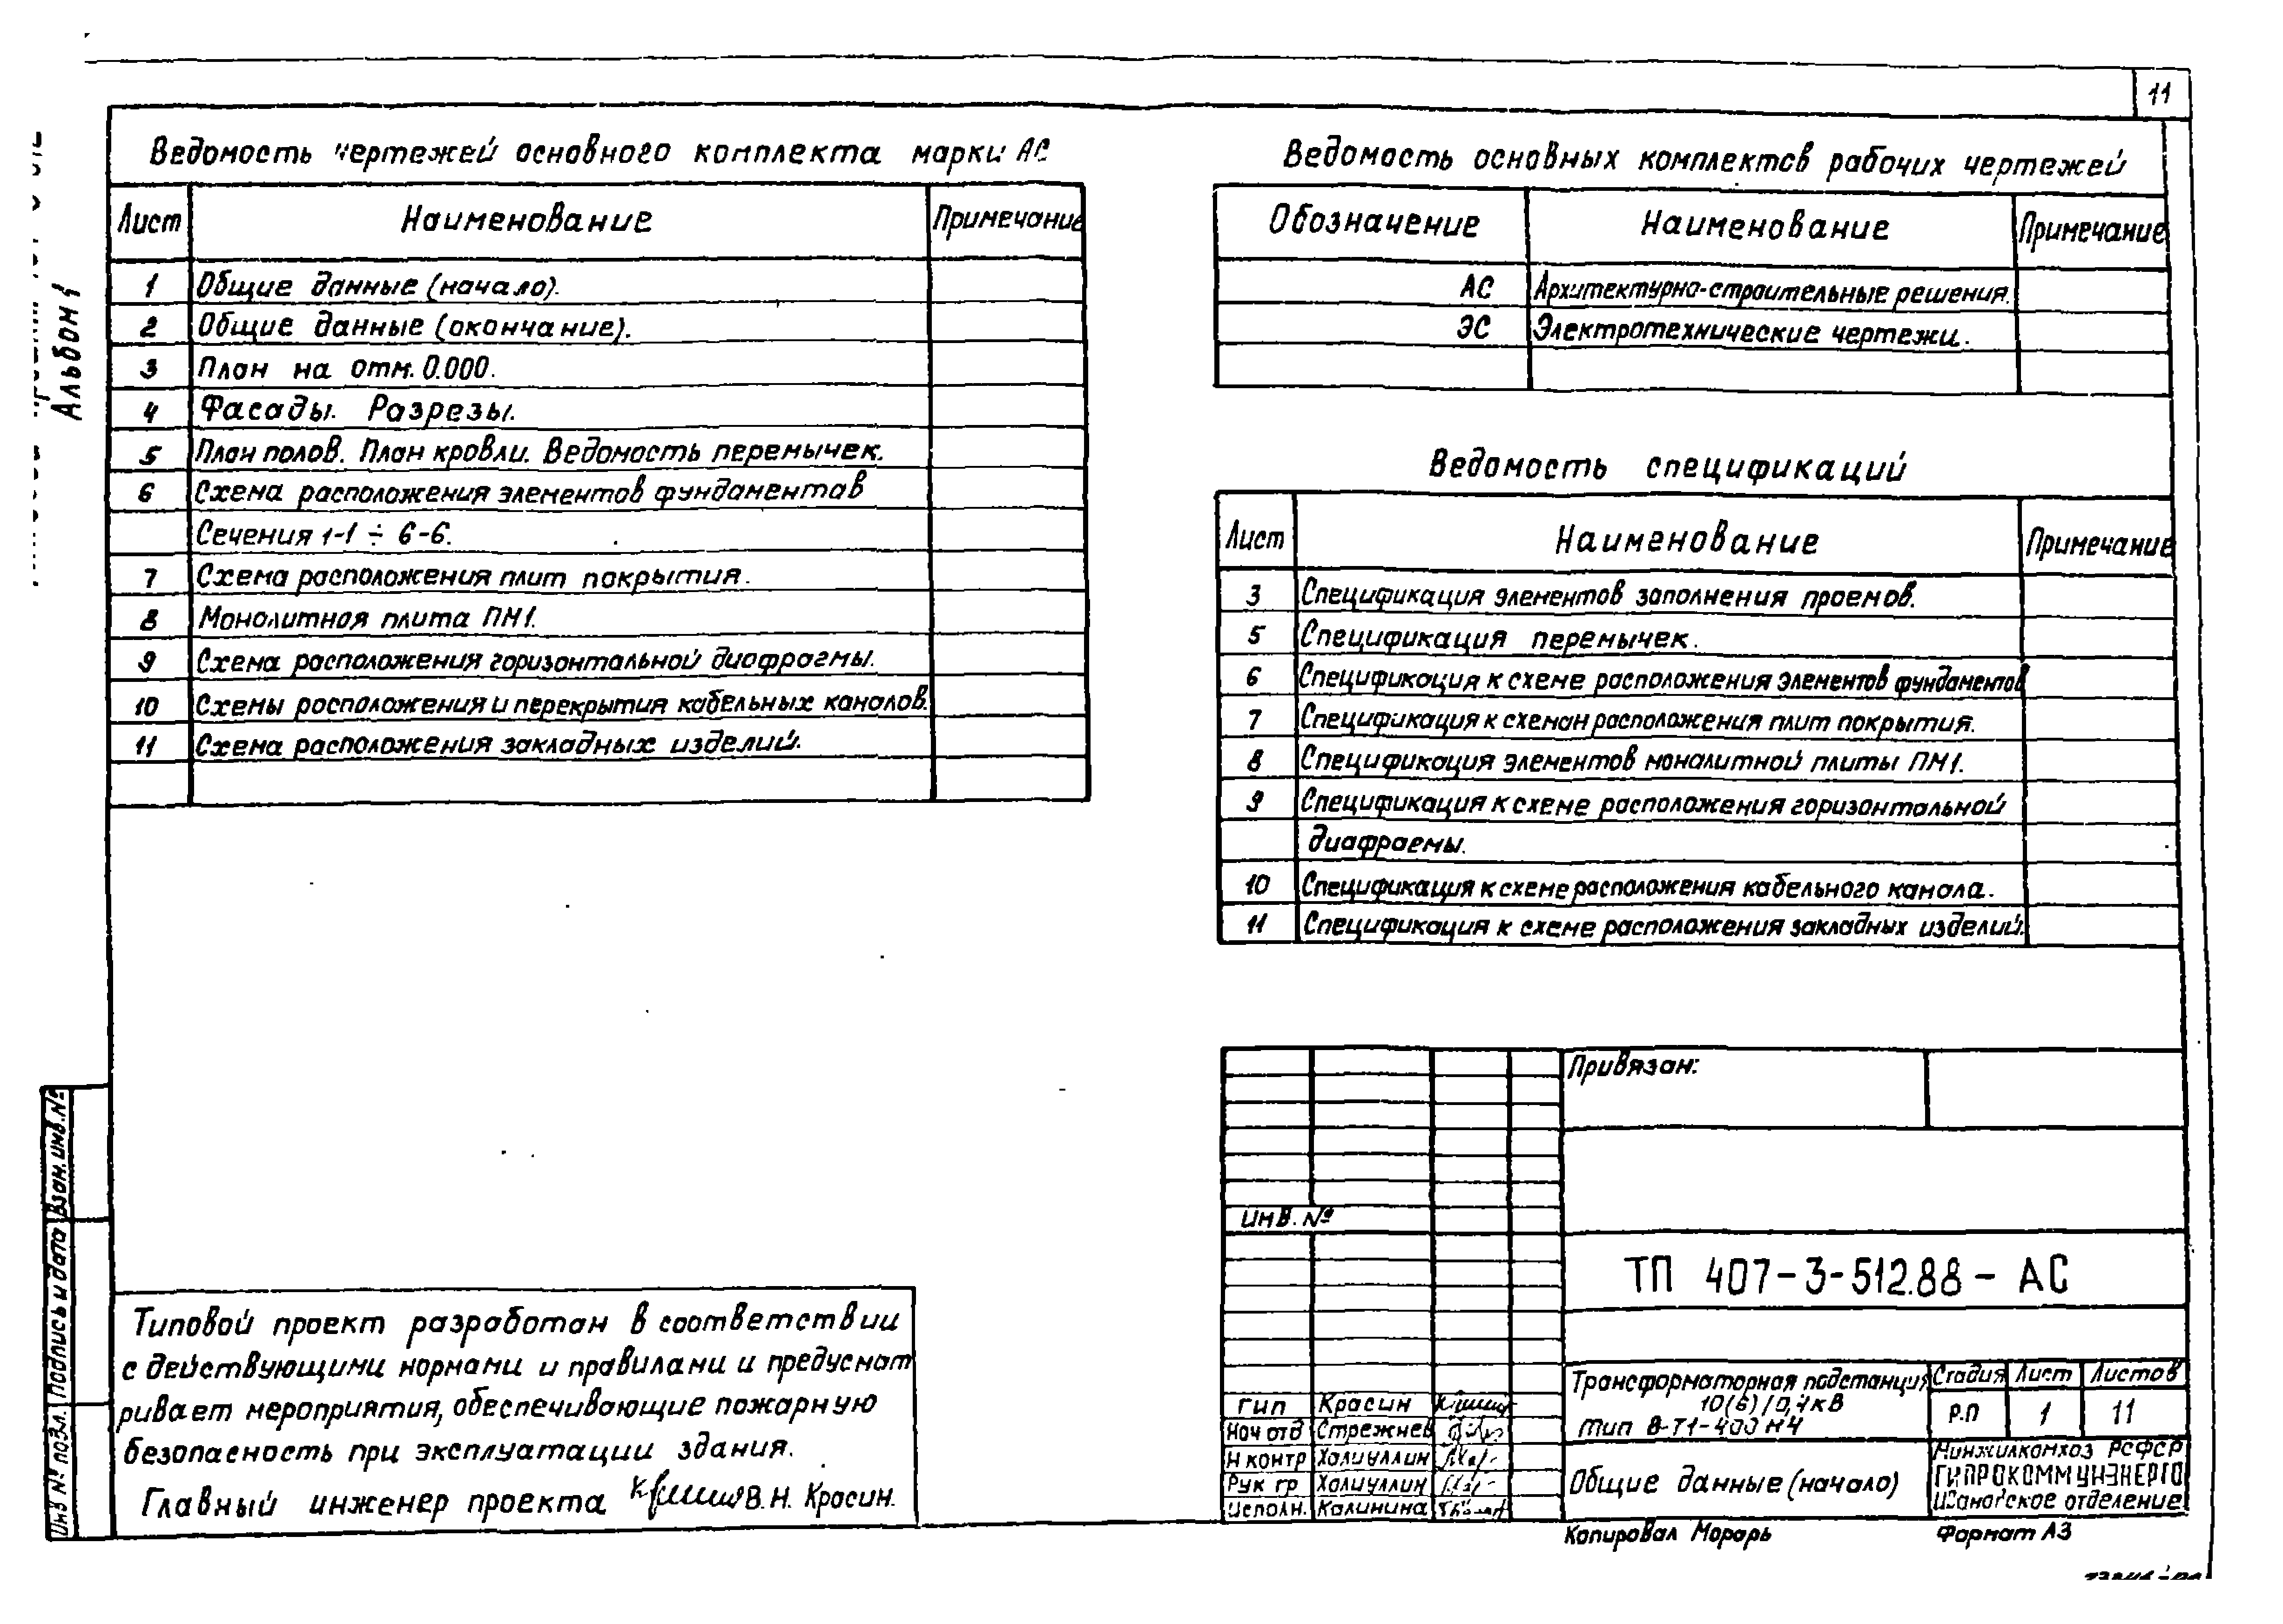 11
Альбом 1
Ведомость чертежей основного комплекта марки АС
Лист Наименование Примечание
1 Общие данные (начало).
2 Общие данные (окончание).
3 План на отм. 0.000.
4 Фасады. Разрезы.
5 План полов. План кровли. Ведомость перемычек.
6 Схема расположения элементов фундаментов
Сечения 1-1 ÷ 6-6.
7 Схема расположения плит покрытия.
8 Монолитная плита ПМ1.
9 Схема расположения горизонтальной диафрагмы.
10 Схемы расположения и перекрытия кабельных каналов.
11 Схема расположения закладных изделий.
Ведомость основных комплектов рабочих чертежей
Обозначение Наименование Примечание
АС Архитектурно-строительные решения.
ЭС Электротехнические чертежи.
Ведомость спецификаций
Лист Наименование Примечание
3 Спецификация элементов заполнения проемов.
5 Спецификация перемычек.
6 Спецификация к схеме расположения элементов фундаментов
7 Спецификация к схемам расположения плит покрытия.
8 Спецификация элементов монолитной плиты ПМ1.
9 Спецификация к схеме расположения горизонтальной
диафрагмы.
10 Спецификация к схеме расположения кабельного канала.
11 Спецификация к схеме расположения закладных изделий.
Взам. инв. №
Подпись и дата
Инв № подл.
Типовой проект разработан в соответствии
с действующими нормами и правилами и предусмат
ривает мероприятия, обеспечивающие пожарную
безопасность при эксплуатации здания.
Главный инженер проекта В.Н. Красин.
Привязан:
Инв. №
ТП 407-3-512.88 - АС
Трансформаторная подстанция
10(6)/0,4кВ
тип В-Т1-400 М4
Стадия Лист Листов
Р.П 1 11
ГИП Красин
Нач отд Стрежнев
Н контр Халиуллин
Рук гр Халиуллин
Исполн. Калинина
Общие данные (начало)
Минжилкомхоз РСФСР
ГИПРОКОММУНЭНЕРГО
Ивановское отделение
Копировал Морарь Формат А3